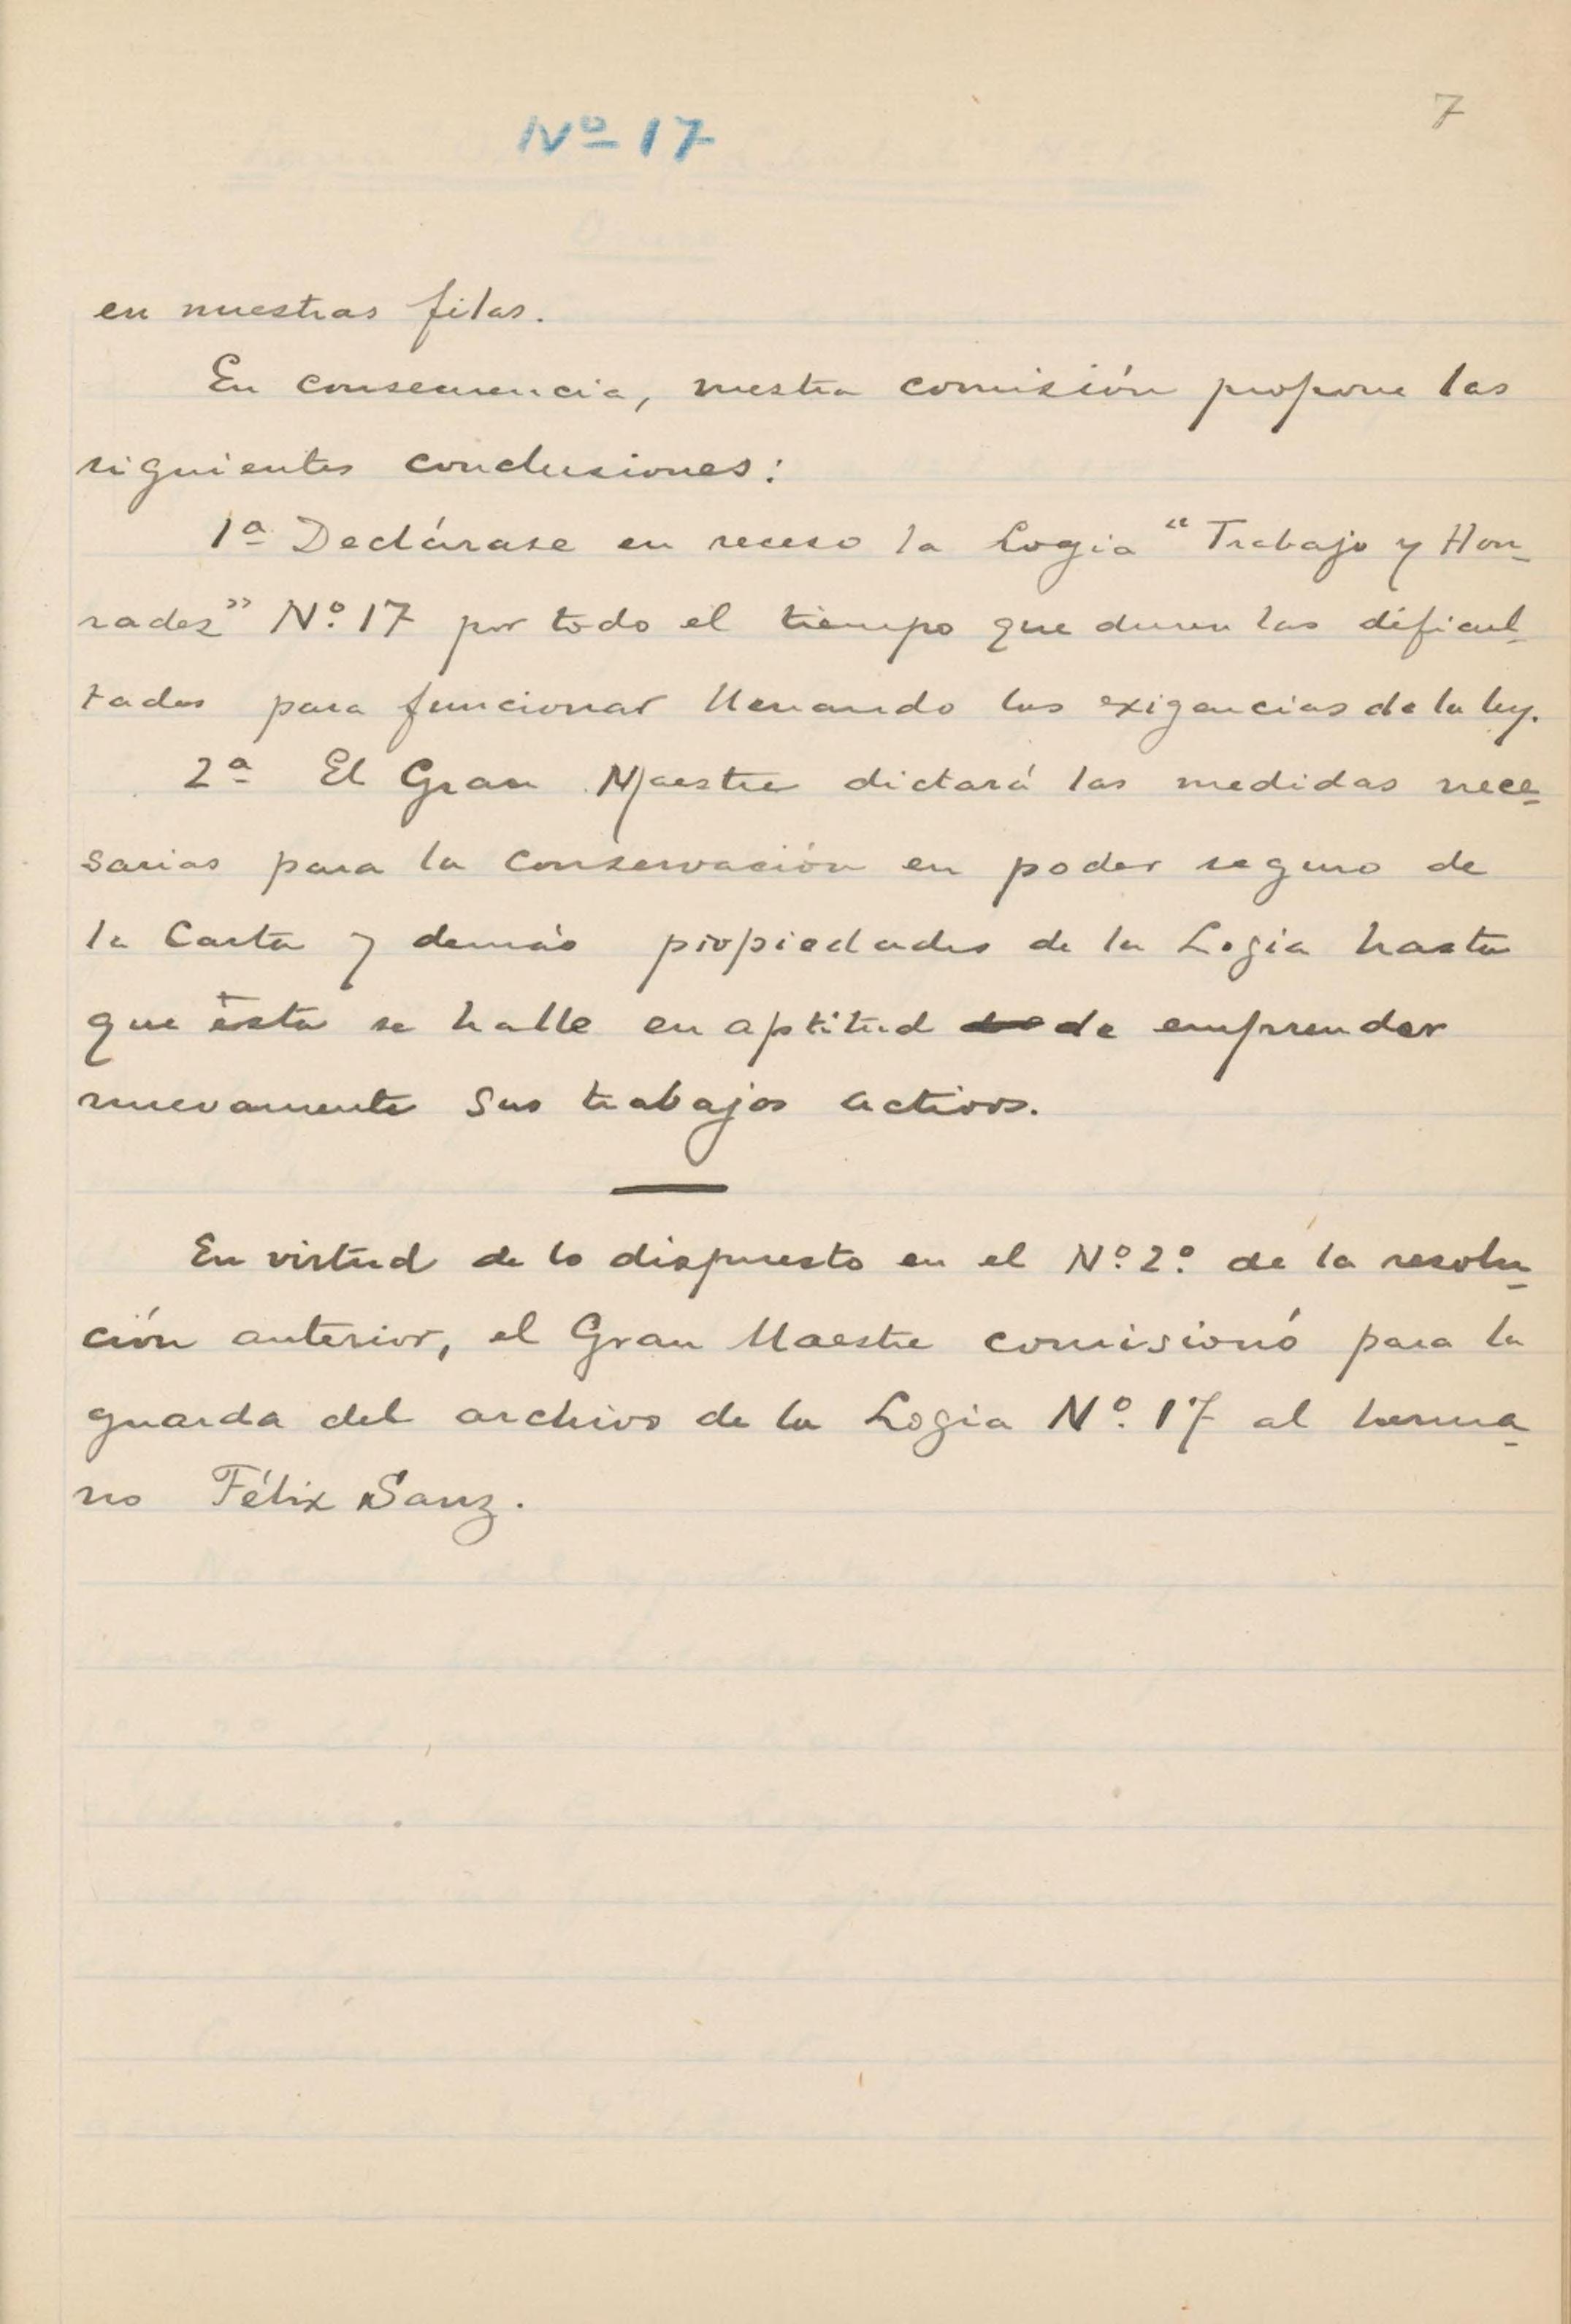 7
Nº 17
en nuestras filas.
En consecuencia, vuestra comisión propone las
siguientes conclusiones:
1ª Declárase en receso la Logia "Trabajo y Hon-
radez" Nº. 17 por todo el tiempo que duren las dificul-
tades para funcionar llenando las exigencias de la ley.
2ª El Gran Maestre dictará las medidas nece-
sarias para la conservación en poder seguro de
la Carta y demás propiedades de la Logia hasta
que ésta se halle en aptitud de emprender
nuevamente sus trabajos activos.
En virtud de lo dispuesto en el Nº. 2º. de la resolu-
ción anterior, el Gran Maestre comisionó para la
guarda del archivo de la Logia Nº. 17 al herma-
no Félix Sanz.